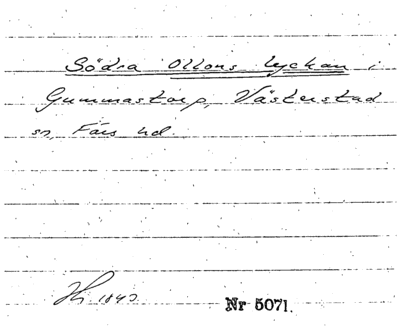 Södra Ollons lyckan i
Gummastorp, Västerstad
sn, Färs hd.
Nr 5071.